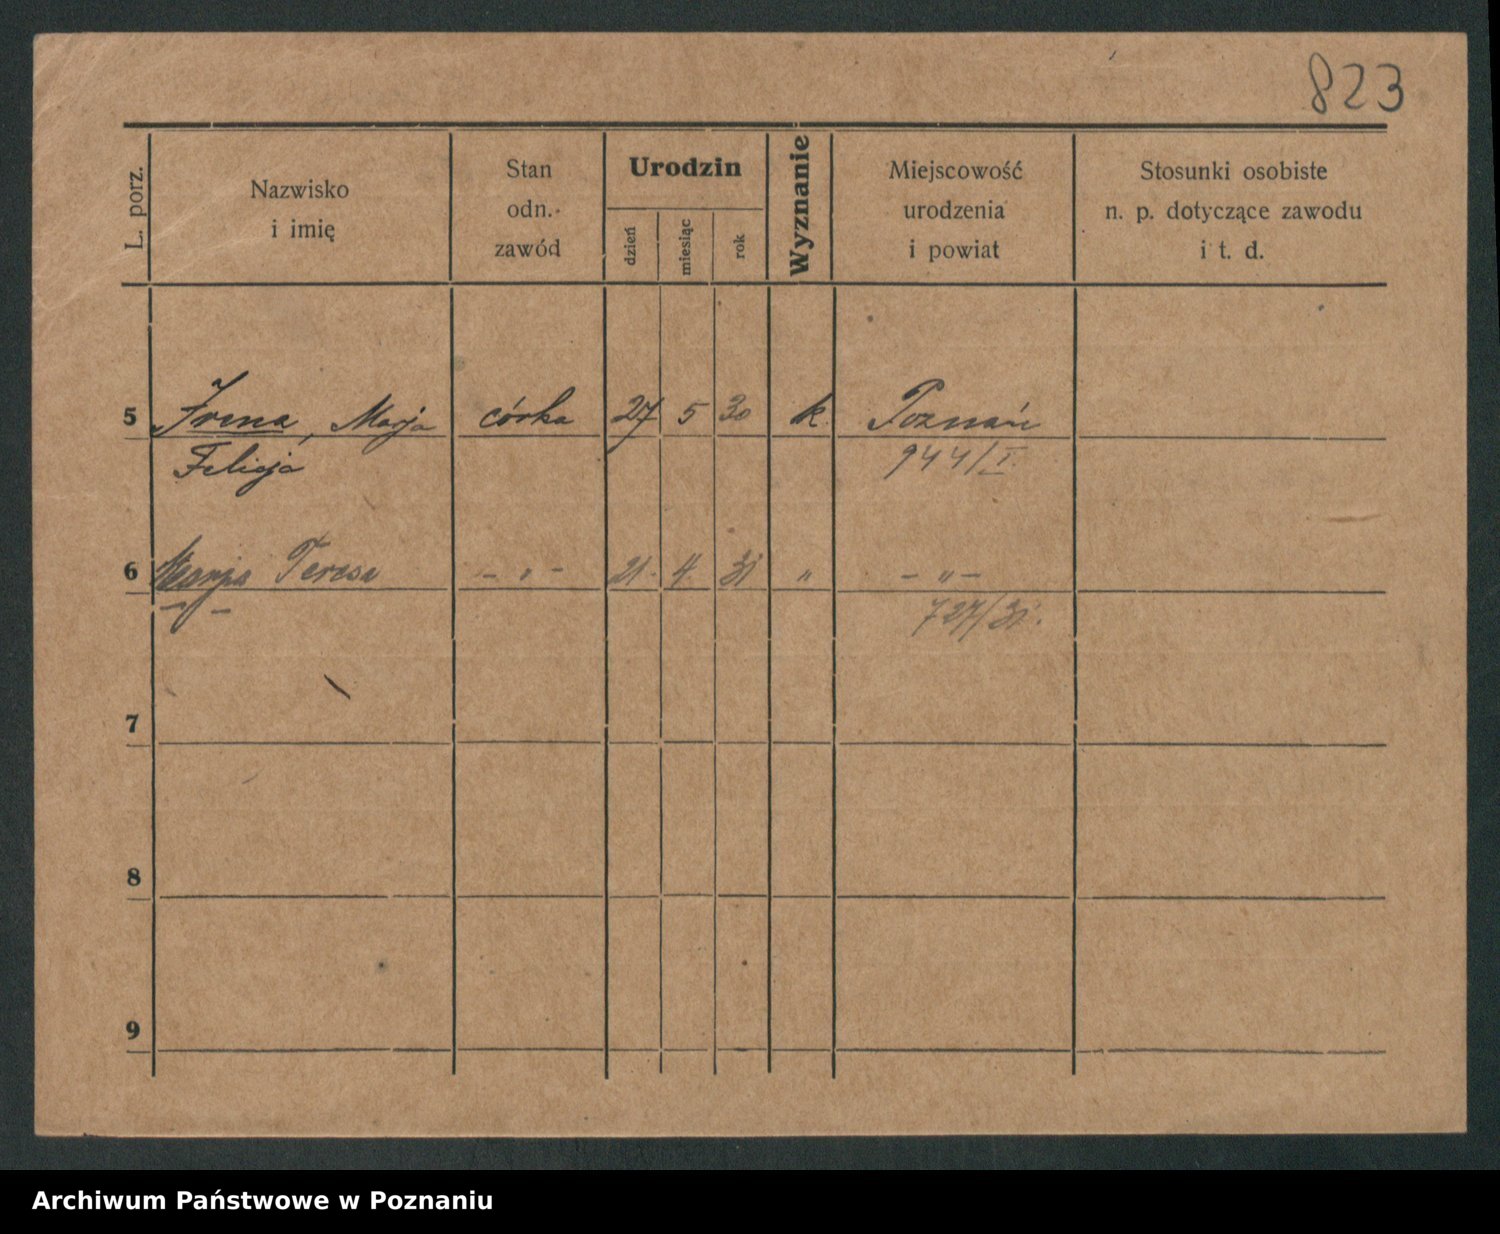 823
L. porz.
Nazwisko
i imię
Stan
odn.
zawód
Urodzin
dzień
miesiąc
rok
Wyznanie
Miejscowość
urodzenia
i powiat
Stosunki osobiste
n. p. dotyczące zawodu
i t. d.
5 Irena, Marja córka 27 5 30 k. Poznań
Felicja 944/I.
6 Marja Teresa - " - 21. 4. 31 " - " -
727/31.
7
8
9
Archiwum Państwowe w Poznaniu